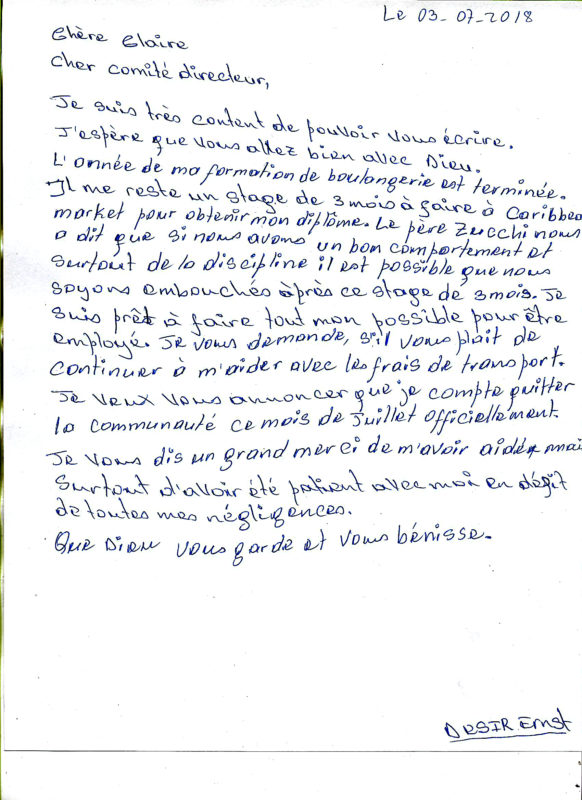 Le 03-07-2018
Chère Claire
Cher comité directeur,
Je suis très content de pouvoir vous écrire.
J'espère que vous allez bien avec Dieu.
L'année de ma formation de boulangerie est terminée.
Il me reste un stage de 3 mois à faire à Caribbea
market pour obtenir mon diplôme. Le père Zucchi nous
a dit que si nous avons un bon comportement et
surtout de la discipline il est possible que nous
soyons embouchés après ce stage de 3 mois. Je
suis prêt à faire tout mon possible pour être
employé. Je vous demande, s'il vous plait de
continuer à m'aider avec les frais de transport.
Je veux vous annoncer que je compte quitter
la communauté ce mois de Juillet officiellement.
Je vous dis un grand merci de m'avoir aider mai
surtout d'avoir été patient avec moi en dépit
de toutes mes négligences.
Que Dieu vous garde et vous bénisse.
DESIR Ernst